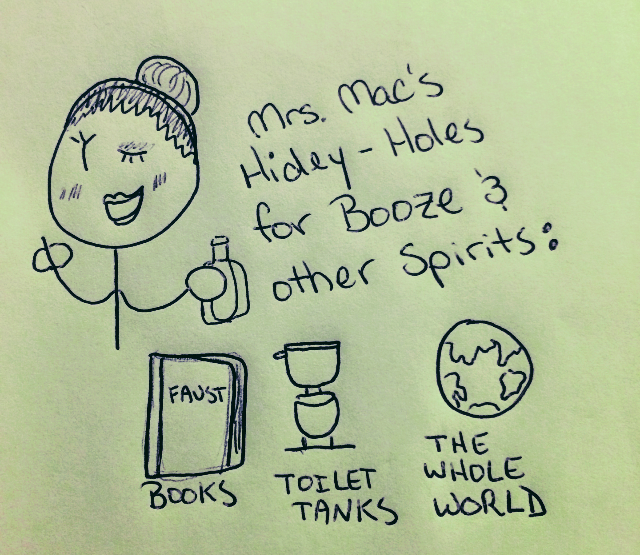 Mrs. Mac's
Hidey-Holes
for Booze &
other Spirits:
FAUST
BOOKS
TOILET
TANKS
THE
WHOLE
WORLD